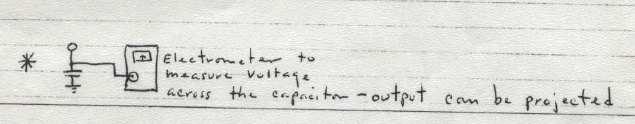 * Electrometer to
measure voltage
across the capacitor - output can be projected